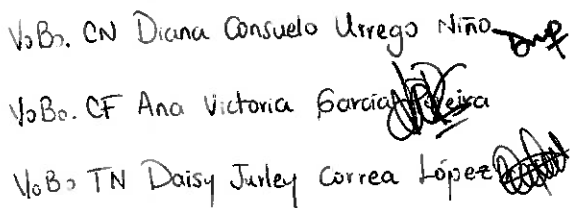 VoBo. CN Diana Consuelo Urrego Niño
VoBo. CF Ana Victoria García
VoBo TN Daisy Jurley Correa López